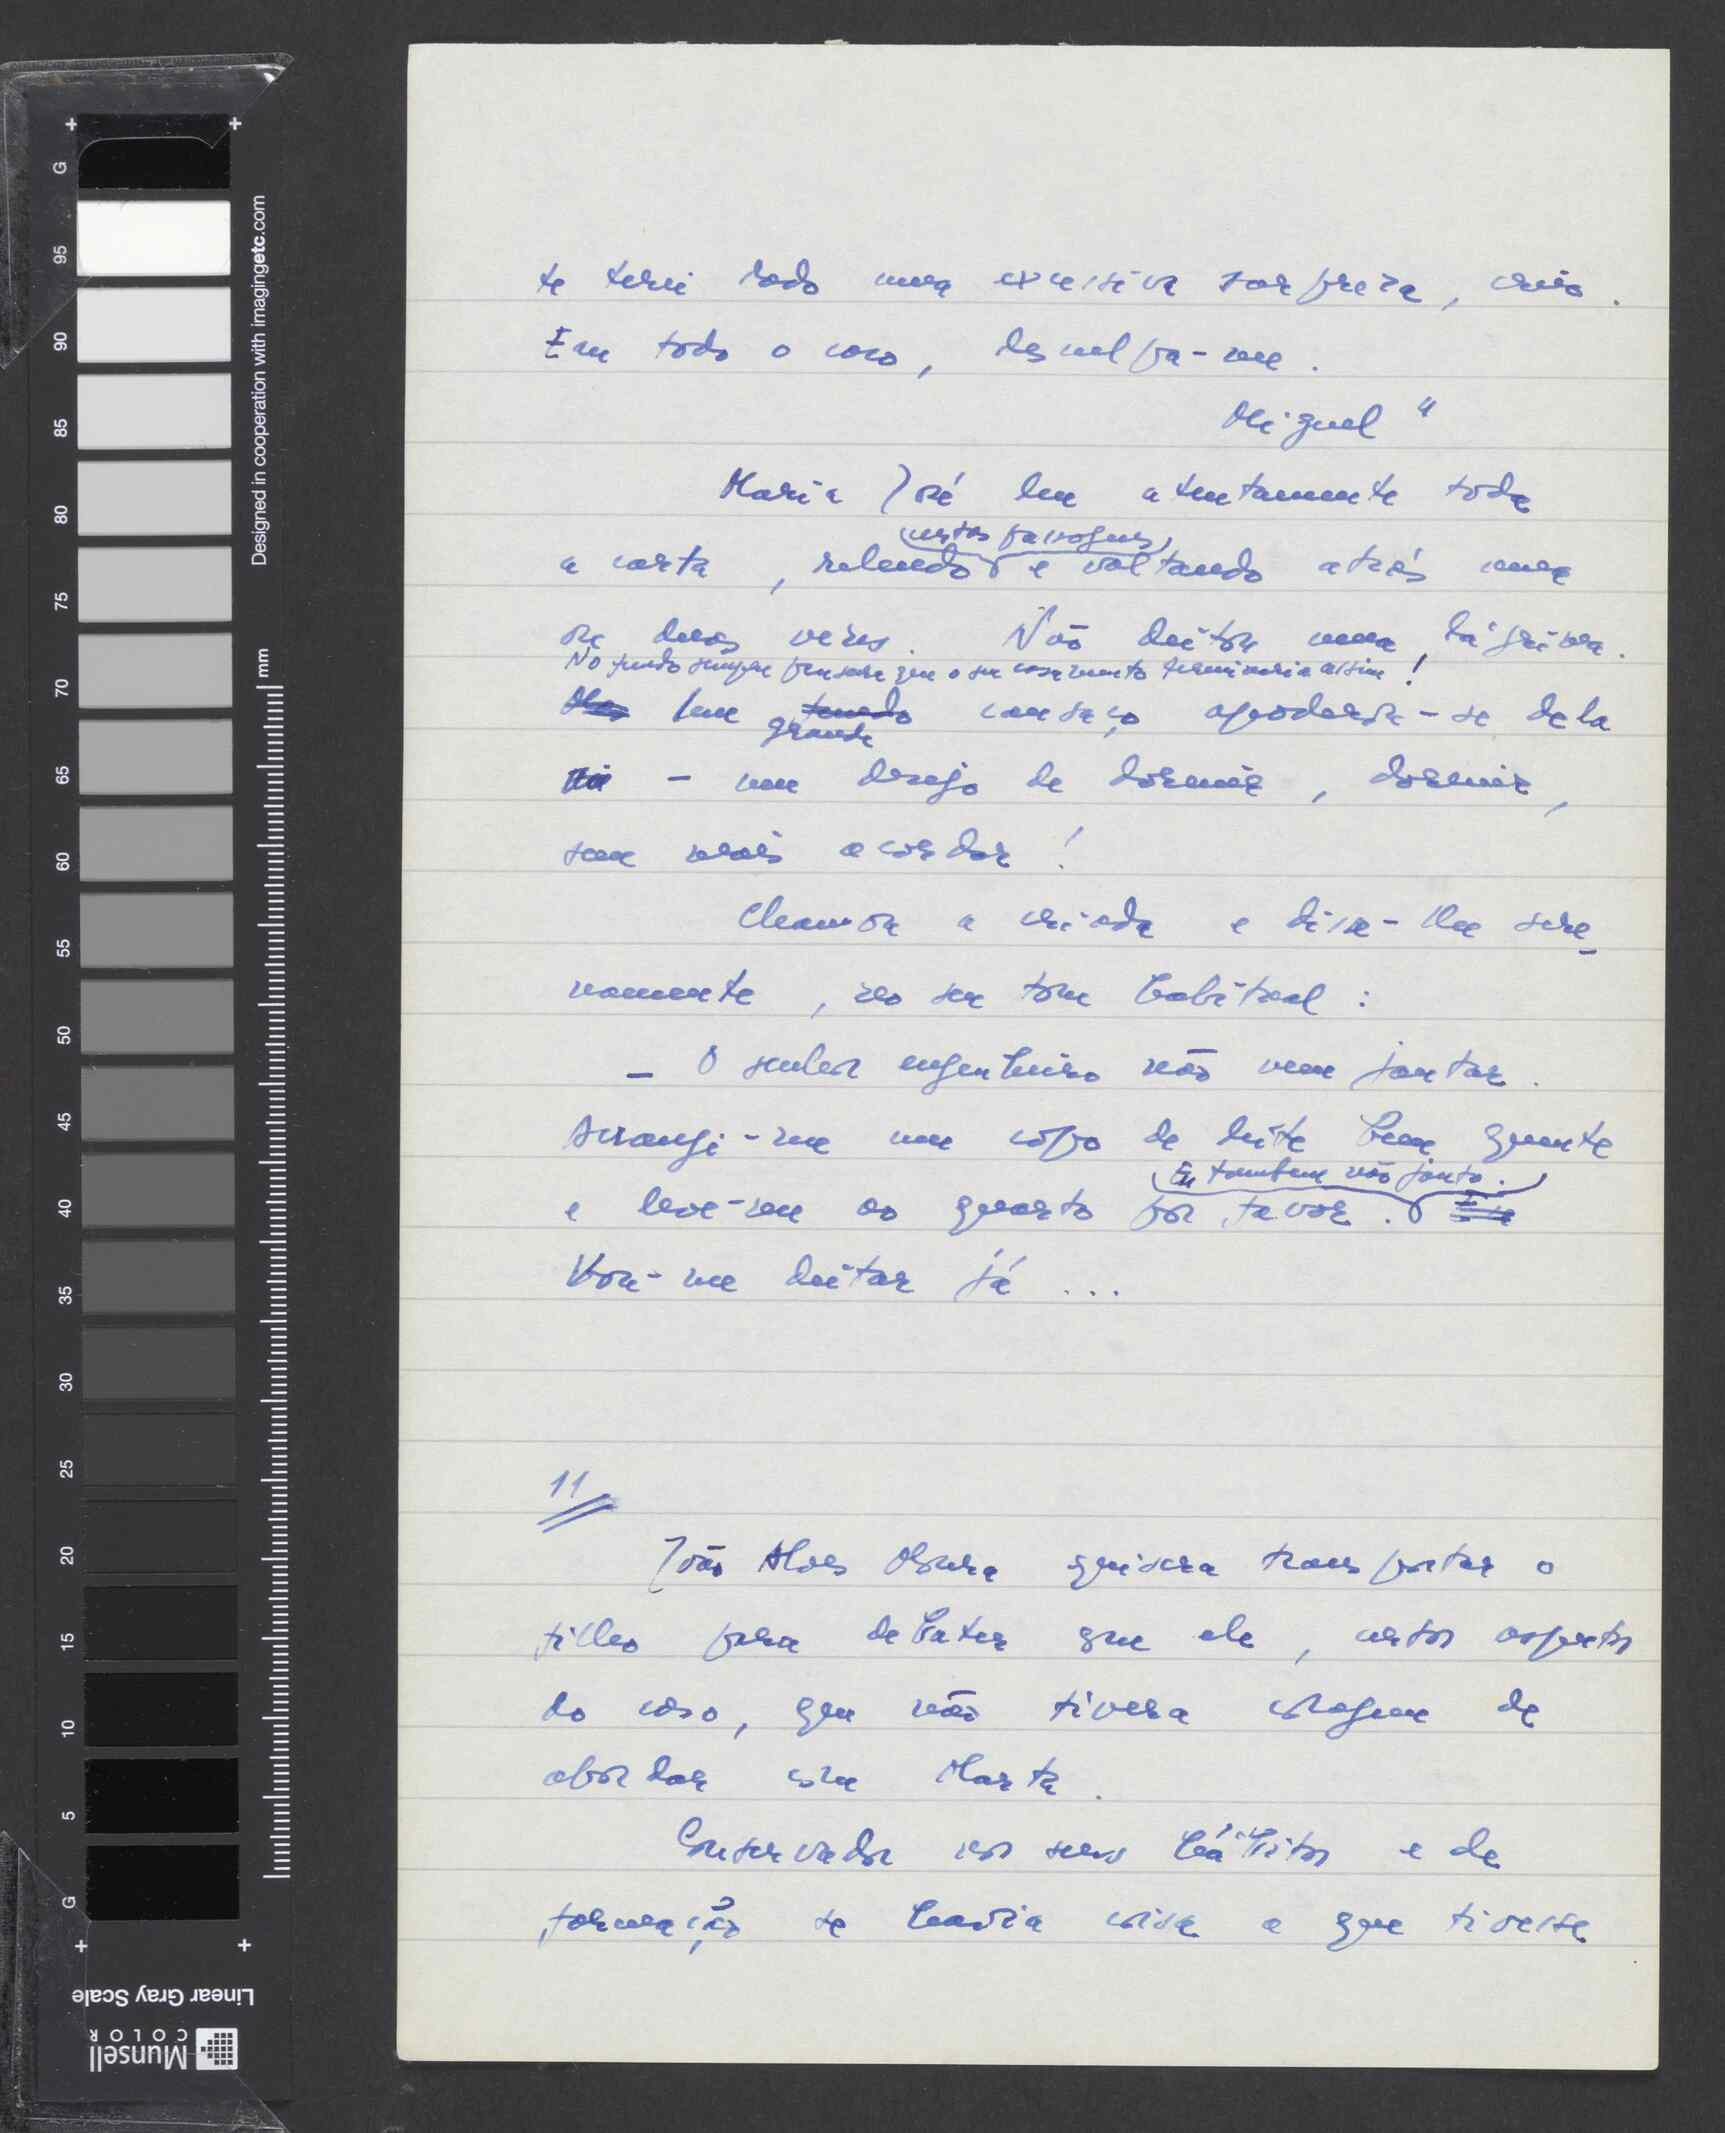 te terei dado uma excessiva sorpreza, creio.
Em todo o caso, desculpa-me.
Miguel"
Maria José leu atentamente toda
certas passagens
a carta, relendo e voltando atrás uma
ou duas vezes. Não deitou uma lágrima.
No fundo sempre pensara que o seu casamento terminaria assim!
Mas um fundo cansaço apoderou-se dela
grande
- um desejo de dormir, dormir,
sem mais acordar!
Chamou a criada e disse-lhe sere-
namente, no seu tom habitual:
- O senhor engenheiro não vem jantar.
Arranje-me um copo de leite bem quente
Eu tambem não janto.
e leve-me ao quarto por favor.
Vou-me deitar já ...
11
João Alves Moura quisera transportar o
filho para debater que ele, certos aspectos
do caso, que não tivera coragem de
abordar com Marta.
Conservador nos seus hábitos e de
formação se havia coisa a que tivesse
Designed in cooperation with imagingetc.com
mm
G 95 90 85 80 75 70 65 60 55 50 45 40 35 30 25 20 15 10 5 G
Linear Gray Scale
Munsell
COLOR